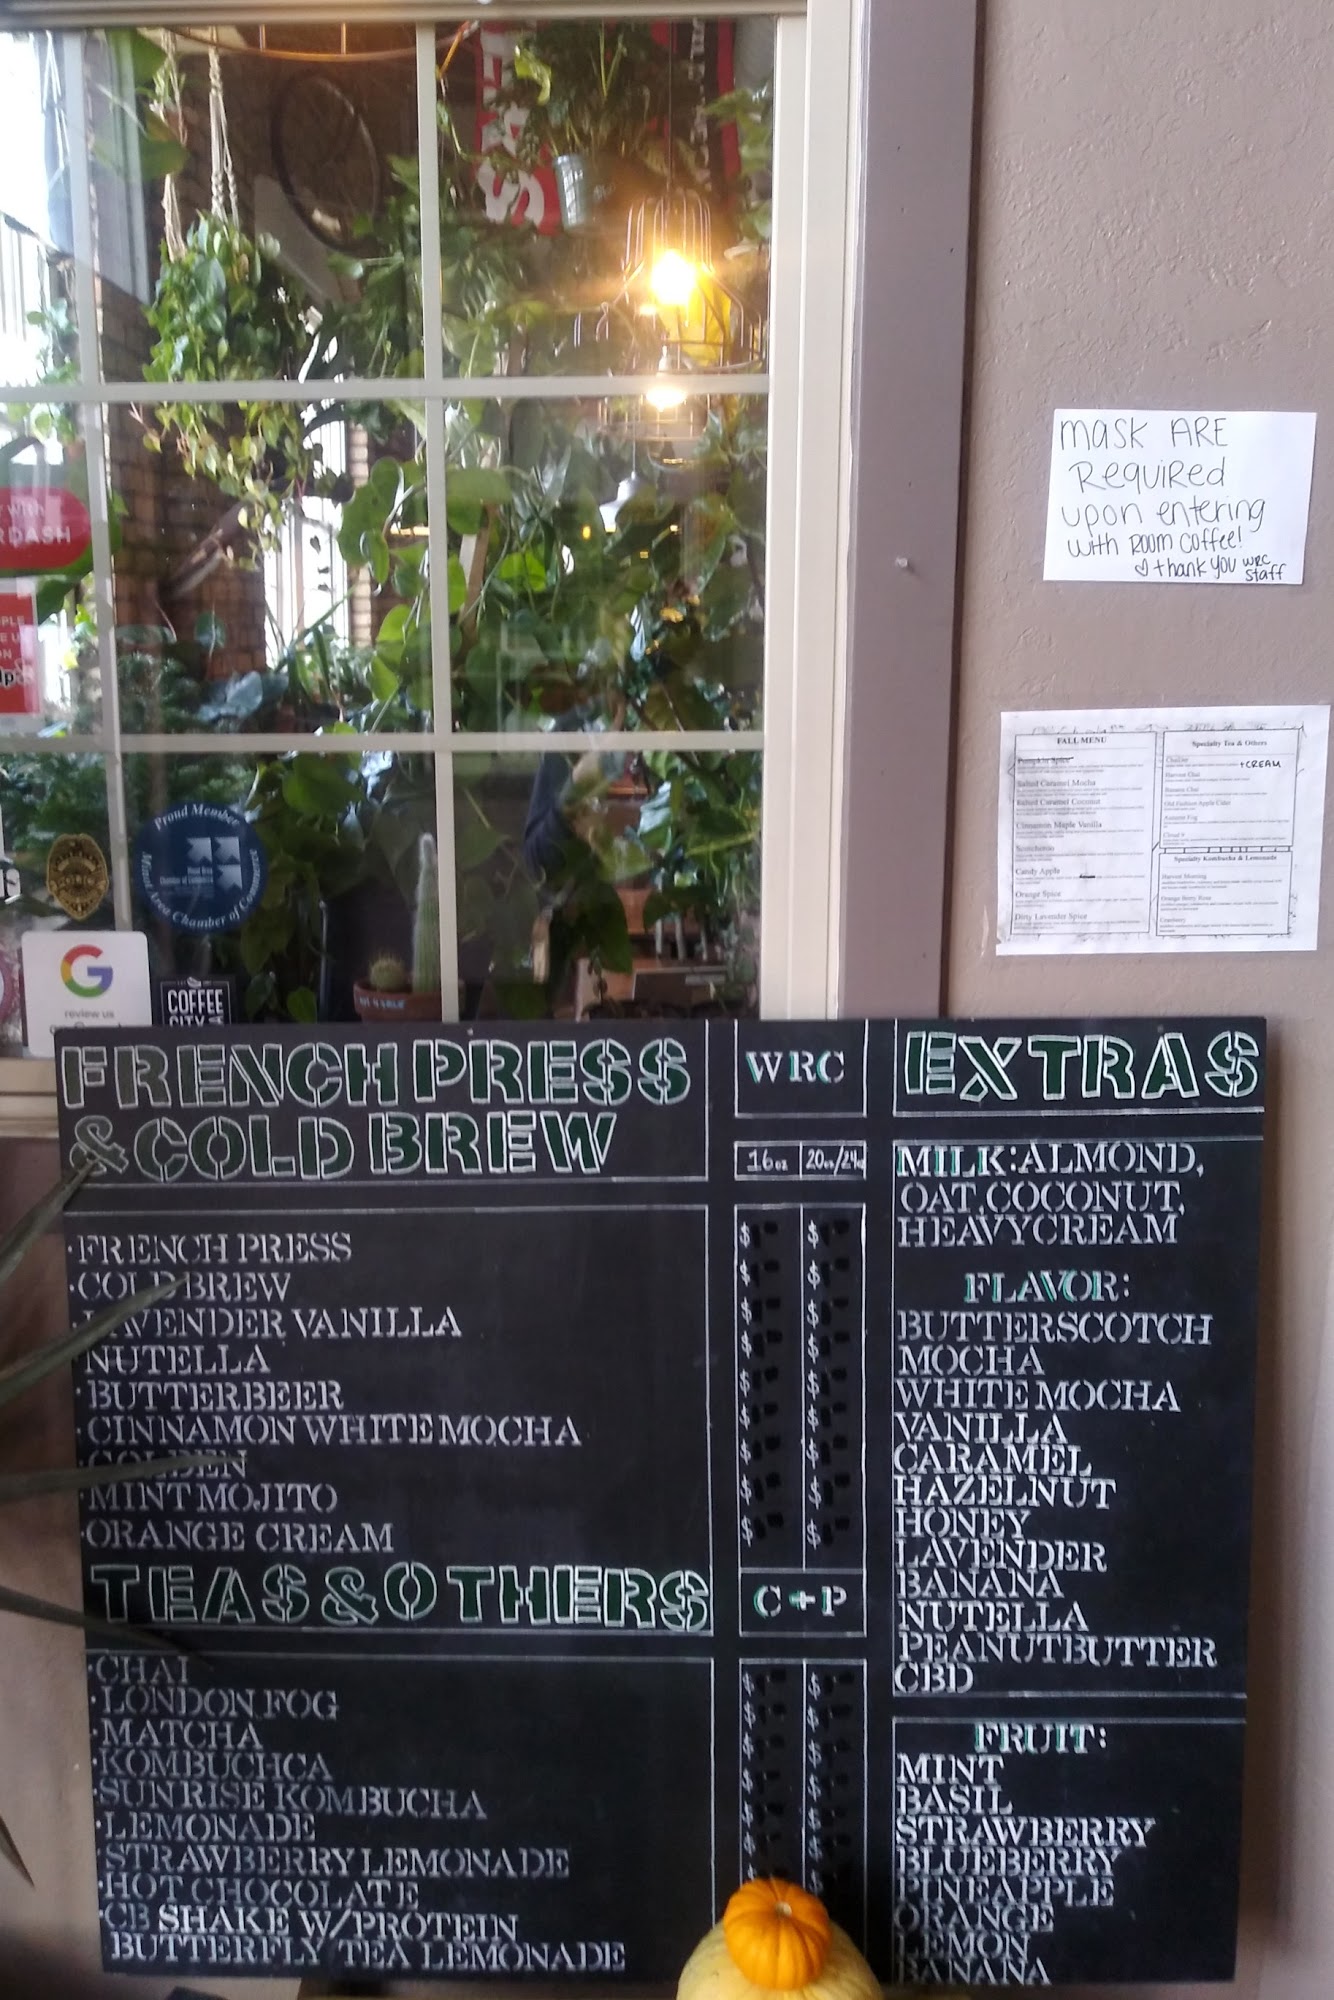 ERS
DASH
Proud Member
Minot Area Chamber of Commerce
G
review us
COFFEE
CITY
mask ARE
Required
upon entering
with Room Coffee!
thank you WRC
staff
FALL MENU
Pumpkin Spice
Salted Caramel Mocha
Salted Caramel Coconut
Cinnamon Maple Vanilla
Candy Apple
Orange Spice
Dirty Lavender Spice
Specialty Tea & Others
+CREAM
Harvest Chai
Banana Chai
Old Fashion Apple Cider
Autumn Fog
Specialty Kombucha & Lemonade
Harvest Morning
Orange Berry Rose
Cranberry
FRENCH PRESS
& COLD BREW
·FRENCH PRESS
·COLD BREW
·LAVENDER VANILLA
·NUTELLA
·BUTTERBEER
·CINNAMON WHITE MOCHA
·GOLDEN
·MINT MOJITO
·ORANGE CREAM
WRC
16oz 20oz/24oz
$ $
$ $
$ $
$ $
$ $
$ $
$ $
$ $
$ $
TEAS & OTHERS
·CHAI
·LONDON FOG
·MATCHA
·KOMBUCHCA
·SUNRISE KOMBUCHA
·LEMONADE
·STRAWBERRY LEMONADE
·HOT CHOCOLATE
·CB SHAKE W/PROTEIN
BUTTERFLY TEA LEMONADE
C+P
$ $
$ $
$ $
$ $
$ $
$ $
$ $
EXTRAS
MILK:ALMOND,
OAT,COCONUT,
HEAVYCREAM
FLAVOR:
BUTTERSCOTCH
MOCHA
WHITE MOCHA
VANILLA
CARAMEL
HAZELNUT
HONEY
LAVENDER
BANANA
NUTELLA
PEANUTBUTTER
CBD
FRUIT:
MINT
BASIL
STRAWBERRY
BLUEBERRY
PINEAPPLE
ORANGE
LEMON
BANANA